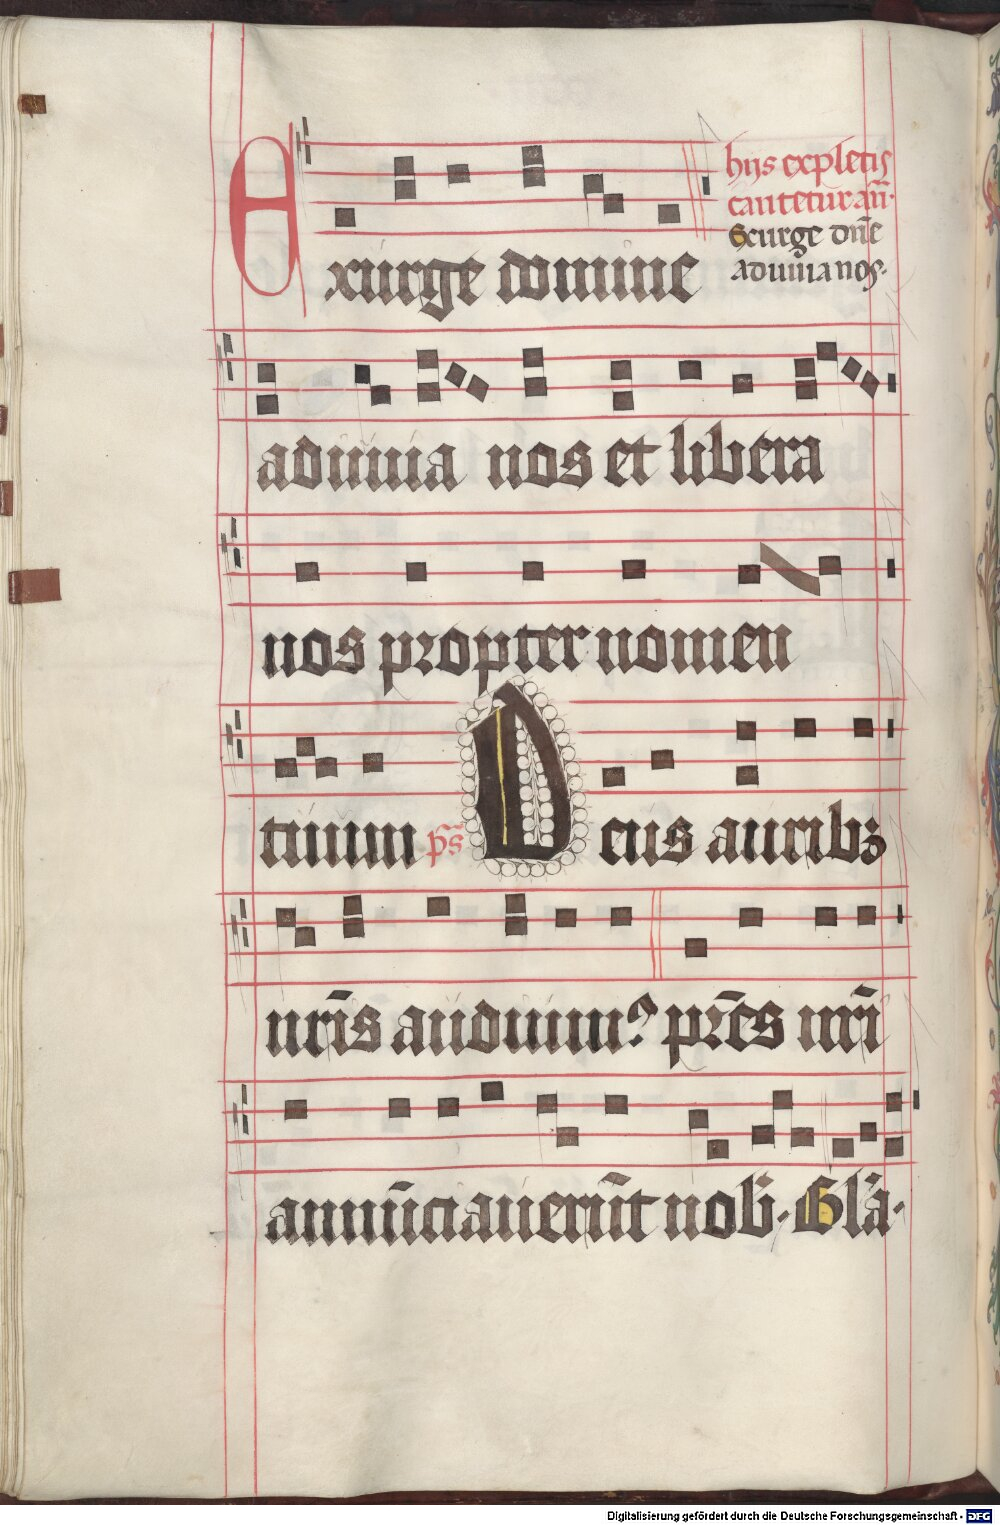 hijs expletis
cantetur añ·
Exurge dñe
adiuua nos·
Exurge domine
adiuua nos et libera
nos propter nomen
tuum ps̃ Deus auribꝫ
nr̃is audiuimꝰ pr̃es nr̃i
annũciauerũt nob̃· Gl̃a·
Digitalisierung gefördert durch die Deutsche Forschungsgemeinschaft - DFG